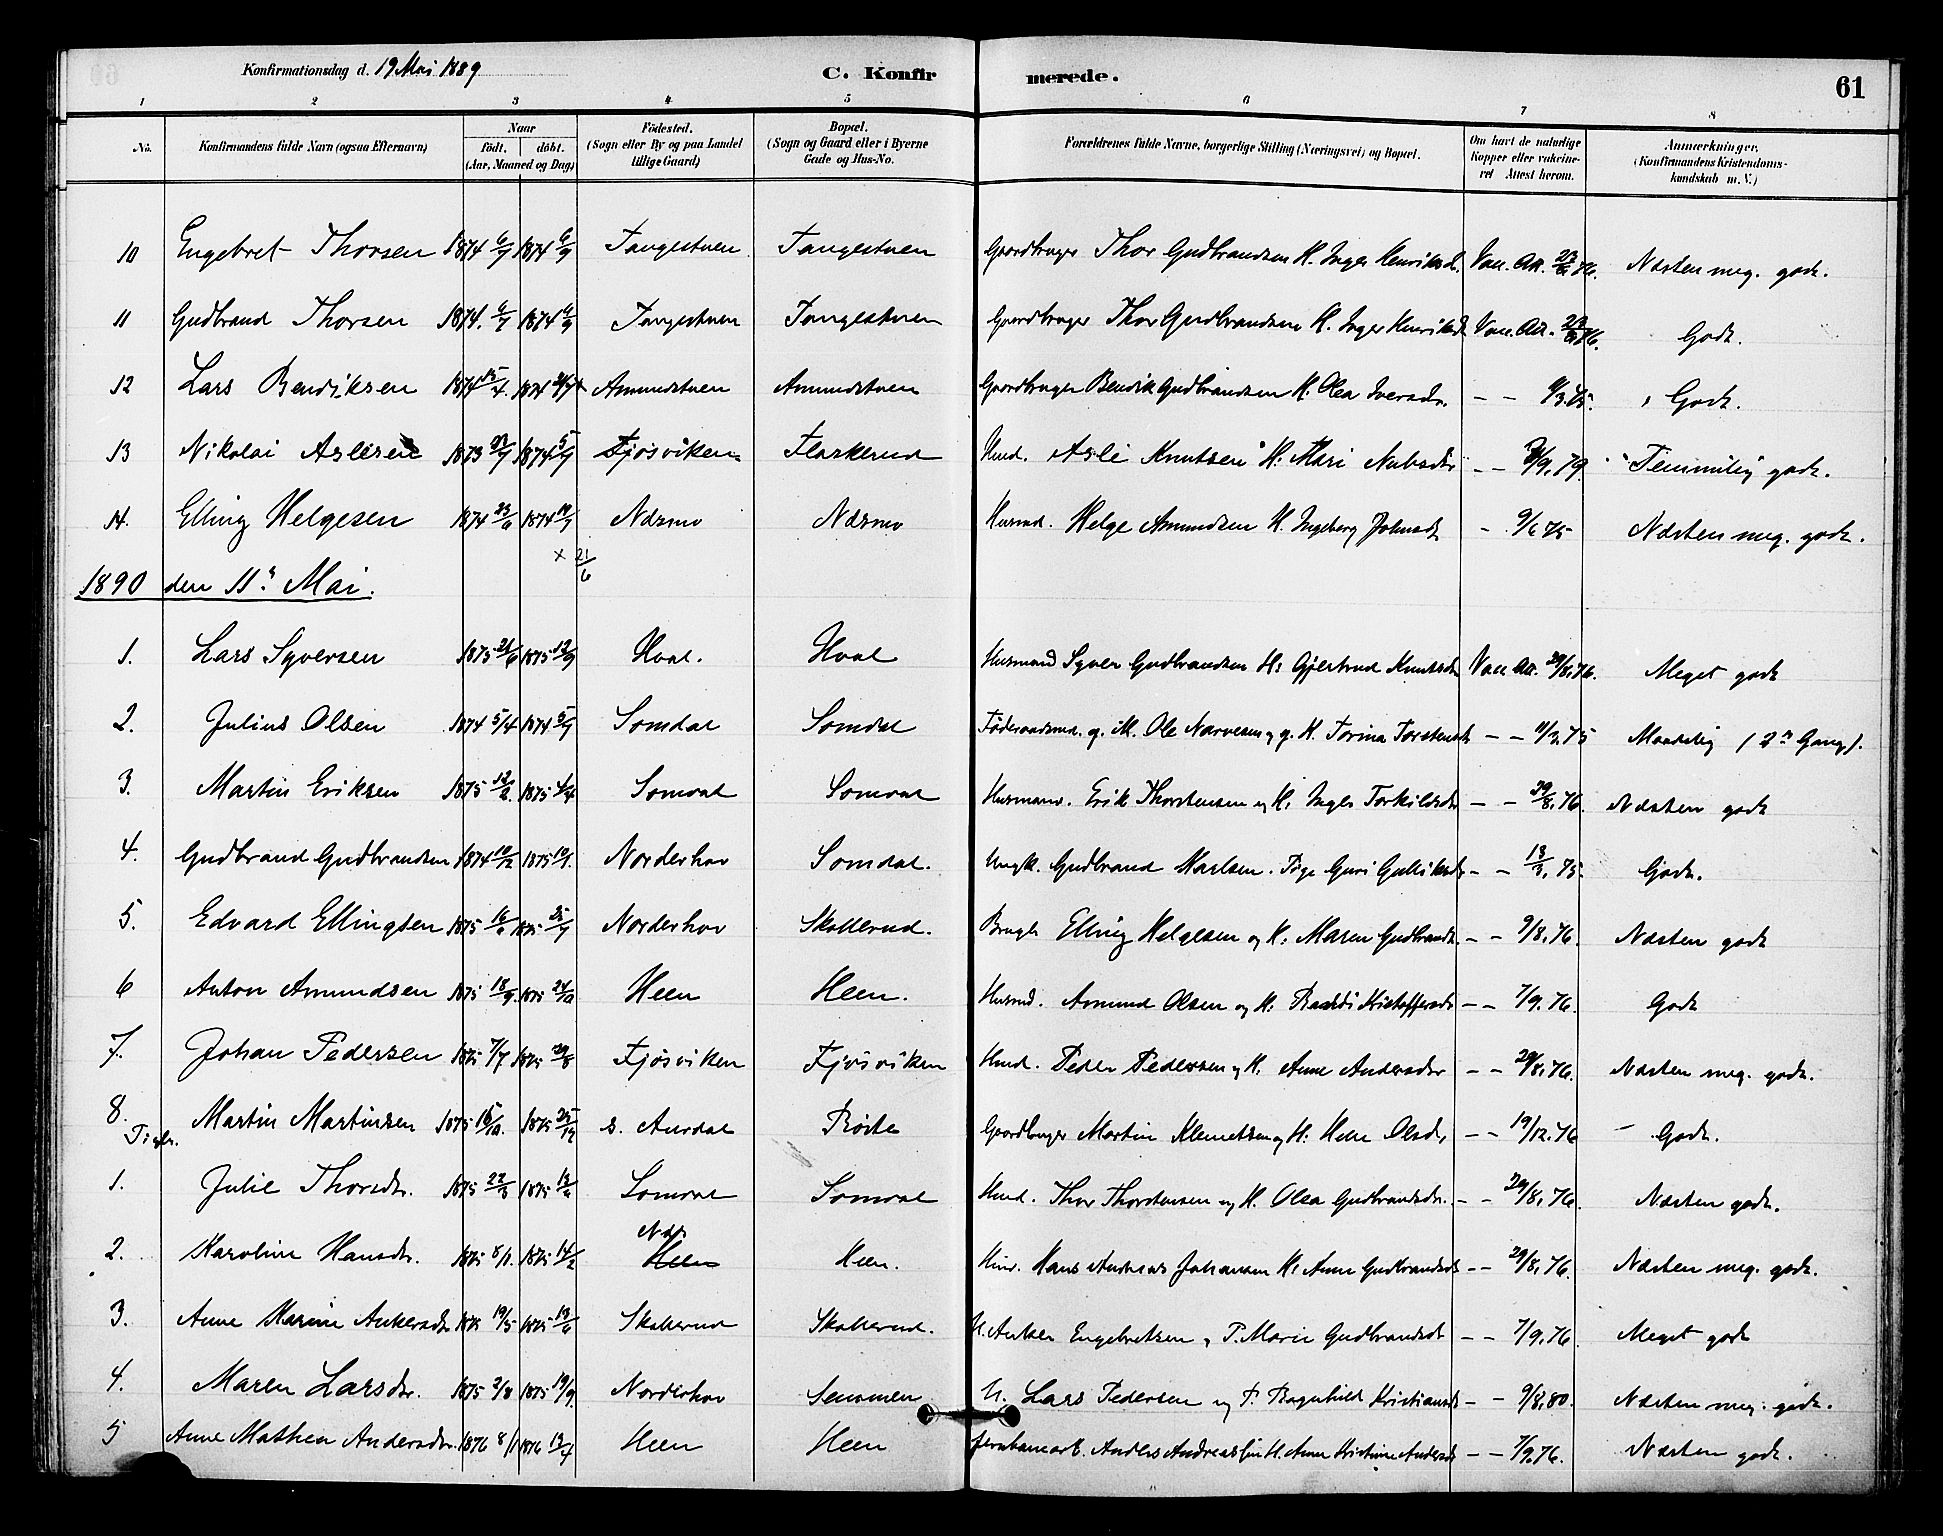 Konfirmationsdag d. 19 Mai 1889 C. Konfirmerede. 61
1 2 3 4 5 6 7 8
No. Konfirmandens fulde Navn (ogsaa Efternavn) Naar födt, döbt. (Aar, Maaned og Dag) Födested. (Sogn eller By og paa Landet tillige Gaard) Bopæl. (Sogn og Gaard eller i Byerne Gade og Hus-No. Forældrenes fulde Navne, borgerlige Stilling (Næringsvei) og Bopæl. Om havt de naturlige Kopper eller vakcineret Attest herom. Anmærkninger. (Konfirmandens Kristendomskundskab m. V.)
10 Engebret Thorsen 1874 6/7 1874 6/9 Tangestuen Tangestuen Gaardbruger Thor Gudbrandsen H. Inger Henriksd. Vac. Att. 76. Næsten meg. godt.
11 Gudbrand Thorsen 1874. 6/7 1874 6/9 Tangestuen Tangestuen Gaardbruger Thor Gudbrandsen H. Inger Henriksdt Vac. Att. 76. Godt.
12 Lars Bendiksen 1874 15/4. 1874 Amundstuen Amundstuen Gaardbruger Bendik Gudbrandsen H. Olea Iversdr. - - /3.75. Godt.
13 Nikolai Aslesen 1873 1874 Fjösviken Flaskerud Hmd. Asle Knutsen H. Mari - - /9.79. Temmelig godt.
14. Elling Helgesen 1874 1874 Næsmo Næsmo Husmd. Helge Amundsen H. Ingeborg Johnsdt - 9/6 75 Næsten meg. godt.
x 21/6
1890 den 11te Mai.
1. Lars Syversen 1875 1875 12/9 Hval. Hval Husmand Syver Gudbrandsen H: Gjertrud Knutsdt Vac. Att. 29/8.76. Meget godt
2. Julius Olsen 1874 5/4 1874 5/7 Somdal Somdal Föderaadsmd. g. M. Ole Narvesen og g. K. Torina Torstensdt - - 11/3.75 Maadelig (2n Gang).
3. Martin Eriksen 1875 12/2. 1875 4/4 Somdal Somdal Husmand. Erik Thorstensen og H. Inger Torkildsdr - - 29/8.76. Næsten godt
4. Gudbrand Gudbrandsen 1874 10/12 1875 10/1. Norderhov Somdal. Ungk. Gudbrand Karlsen. Pige Guri Gulliksdr - - 13/3.75. Godt.
5. Edvard Ellingsen 1875 1875 Norderhov Skollerud. Brugb Elling Helgesen og H. Maren Gudbrandsdt. - - 9/8.76. Næsten godt
6 Anton Amundsen 1875 18/9. 1875 24/10 Heen Heen. Husmd. Amund Olsen og H: Kristoffersdr - - 7/9.76. Godt
7. Johan Pedersen 1875 7/7 1875 29/8 Fjösviken Fjösviken Hmd. Peder Pedersen og H. Anne Andersdr - - 29/8.76. Næsten meg. godt.
8. Martin Martinsen 1875 1875 25/12 s. Aurdal Röste Gaardbruger Martin Klemetsen og H. Olsdr - - 19/12.76 Godt.
Piger.
1. Julie Thorsdr. 1875 22/3 1875 Somdal Somdal Hmd. Thor Thorstensen og H. Olea Gudbrandsdr. - - 29/8.76. Næsten godt.
2. Karoline Hansdr. 1875 8/1. 1875 14/2 Næs Heen Heen. Hmd. Hans Andreas Johansen H: Anne Gudbrandsdt - - 29/8.76. Næsten meg. godt.
3. Anne Karine Ankersdr 1875 19/5 1875 13/6 Skollerud Skollerud. U. Anker Engebretsen og P. Marie Gudbrandsdt - - 7/9.76. Meget godt
4. Maren Larsdr. 1875 2/8 1875 19/9 Norderhov Semmen U. Lars Pedersen og P. Ragnhild Kristiansdt - - 9/8.80. Næsten meg. godt.
5 Anne Mathea Andersdr. 1876 8/1 1876 Heen Heen Jernbanearb. Anders Andreassen H. Anne Kristine Andersdr - - 7/9.76. Næsten godt.